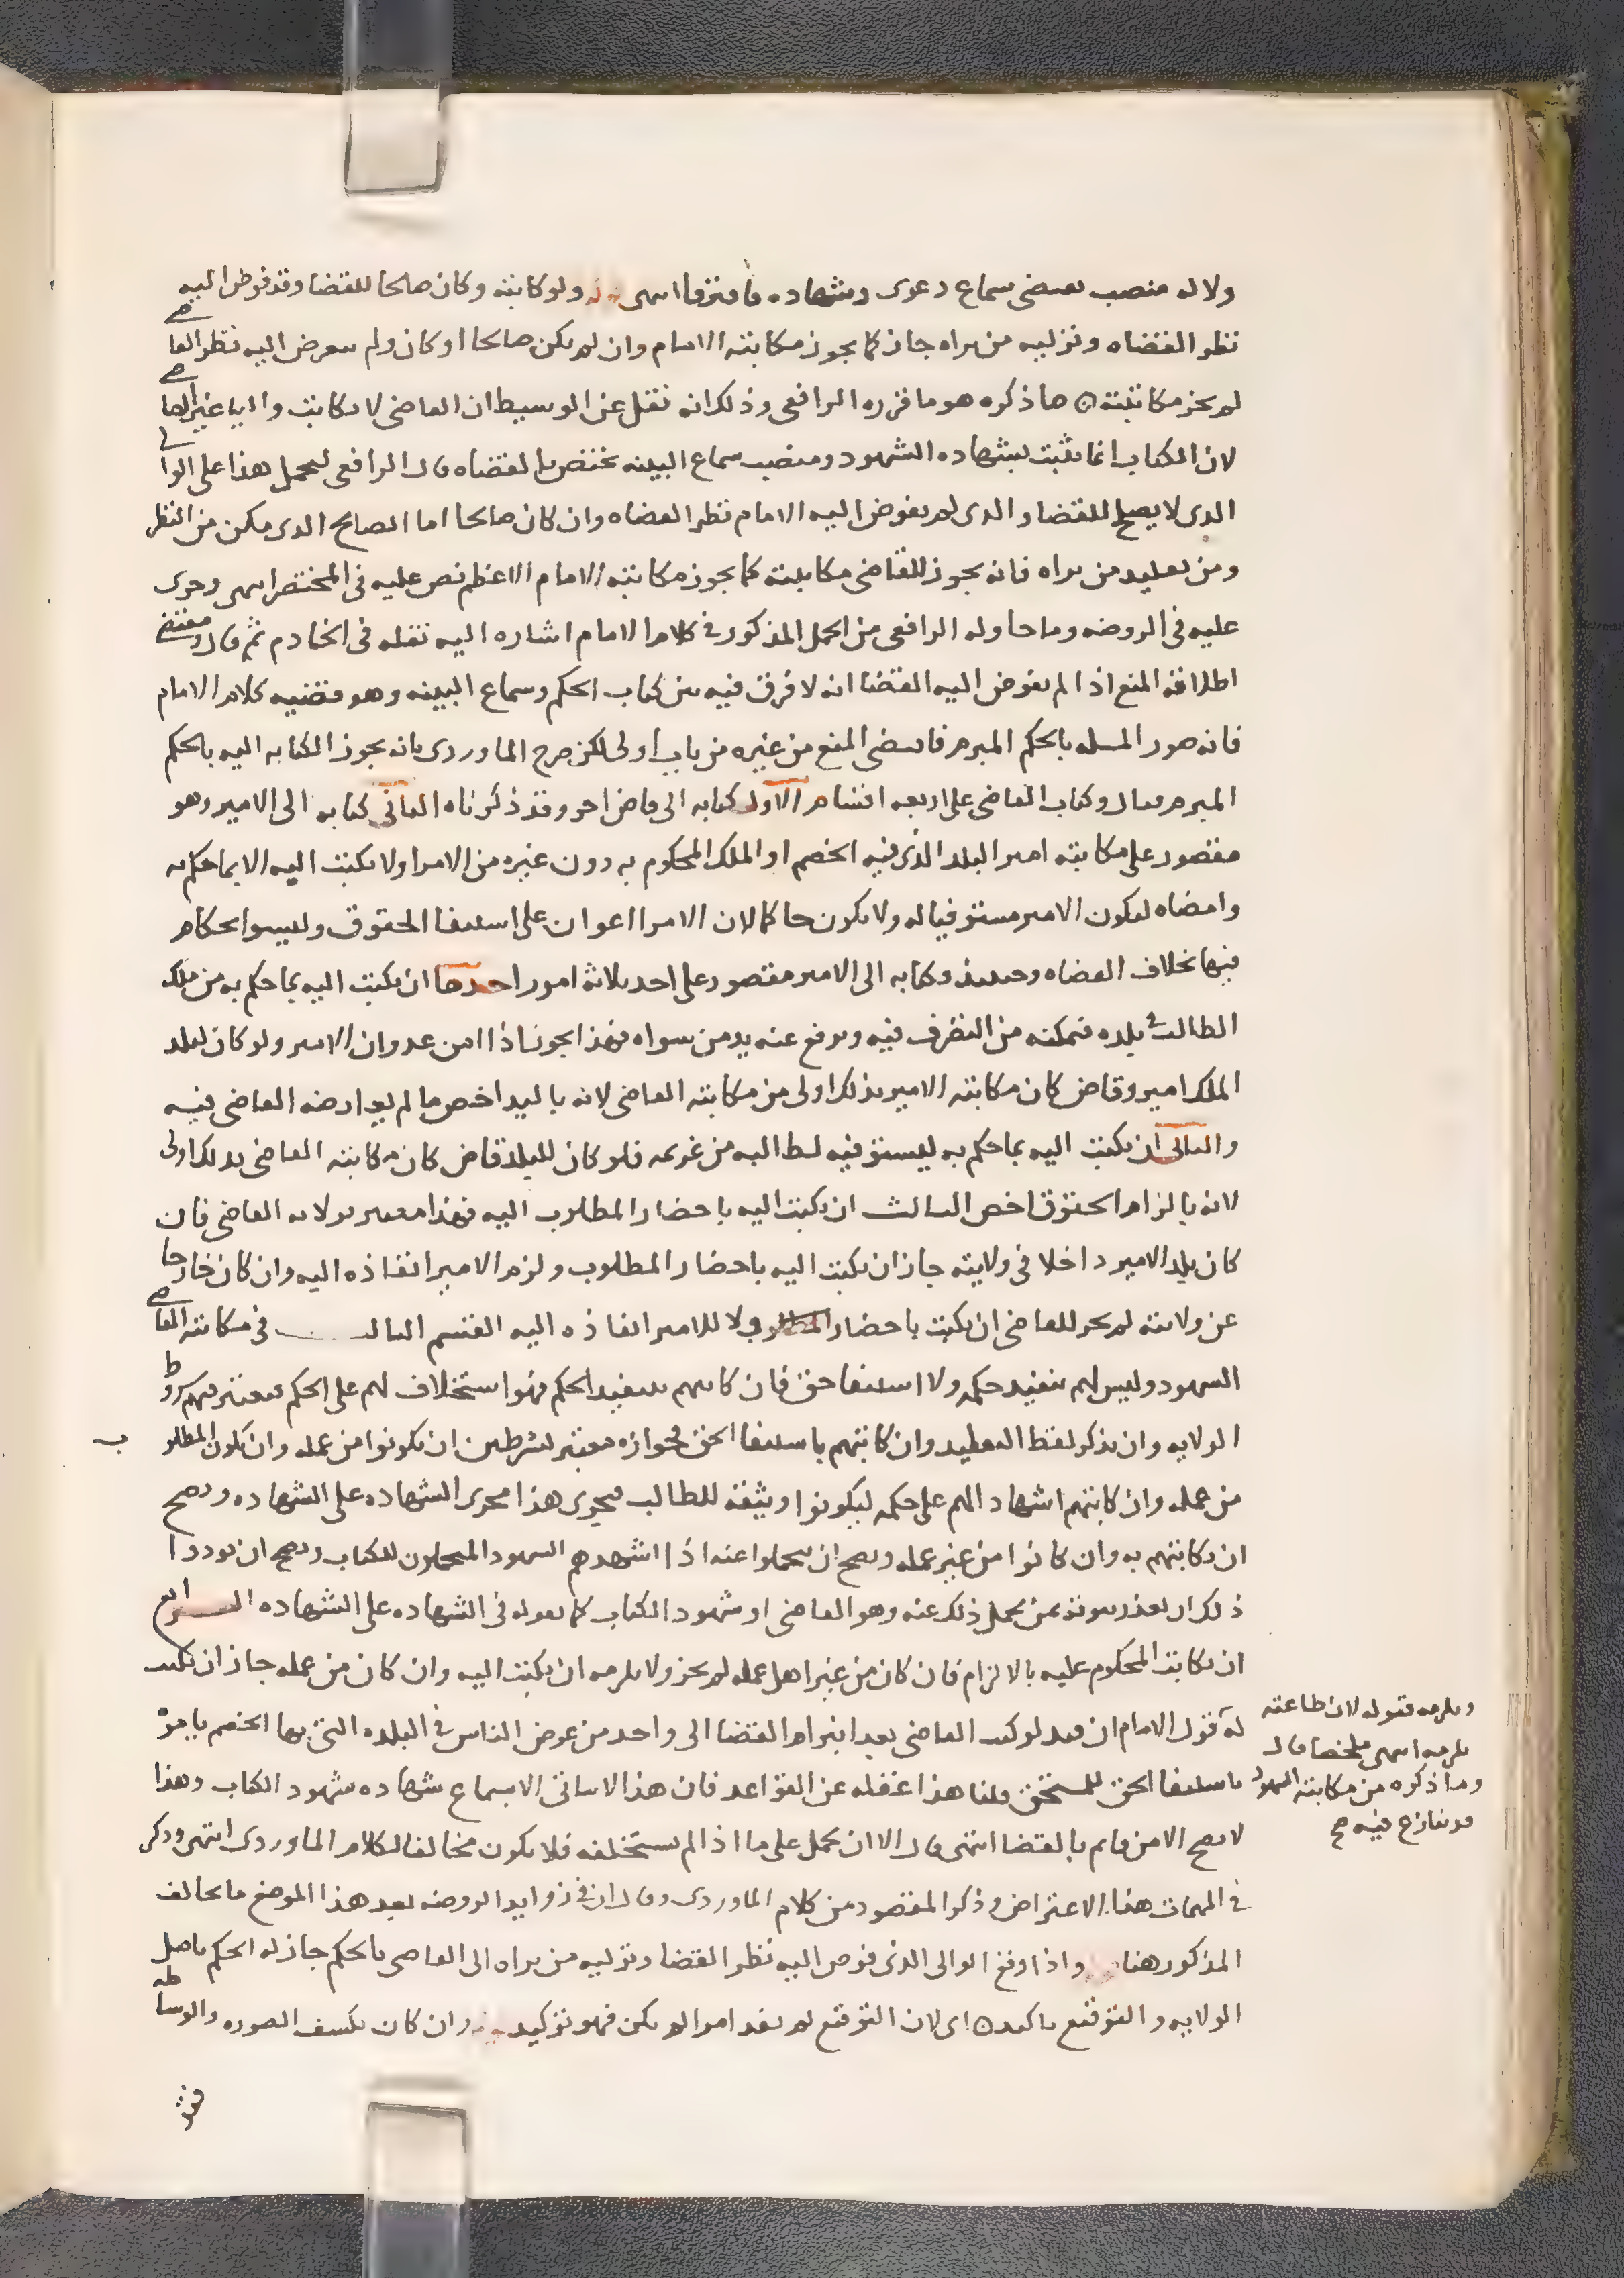 ولا له منصب يقتضي سماع دعوى وشهادة فافترقا انتهى ولو كاتبه وكان صالحا للقضا وقد فوض اليه
نظر القضاه وتوليه من يراه جاز كما يجوز مكاتبته الامام وان لم يكن صالحا او كان ولم يفوض اليه نظر القاضي
لم يجز مكاتبته ۞ ما ذكره هو ما قرره الرافعي وذلك انه نقل عن الوسيط ان القاضي لا يكاتب واليا غير القاضي
لان الكتاب انما يثبت بشهاده الشهود ومنصب سماع البينه يختص بالقضاه قال الرافعي ليحمل هذا على الوالي
الذي لا يصلح للقضا والذي لم يفوض اليه الامام نظر القضاه وان كان صالحا اما الصالح الذي مكن من النظر
ومن تقليد من يراه فانه يجوز للقاضي مكاتبته كما يجوز مكاتبته الامام الاعظم نص عليه في المختصر انتهى وجرى
عليه في الروضه وما حاوله الرافعي من الحمل المذكور في كلام الامام اشاره اليه نقله في الخادم ثم قال ومقتضى
اطلاقه المنع اذا لم يفوض اليه القضا انه لا فرق فيه بين كتاب الحكم وسماع البينه وهو قضيه كلام الامام
فانه صور المسله بالحكم المبرم فاقتضى المنع من غيره من باب اولى لكن صرح الماوردي بانه يجوز الكتابه اليه بالحكم
المبرم فقال وكتاب القاضي على اربعه اقسام الاول كتابه الى قاض اخر وقد ذكرناه الثاني كتابه الى الامير وهو
مقصور على مكاتبته امير البلد الذي فيه الخصم او الملك المحكوم به دون غيره من الامرا ولا يكتب اليه الا بما حكم به
وامضاه ليكون الامير مستوفيا له ولا يكون حاكما لان الامرا اعوان على استيفا الحقوق وليسوا بحكام
فيها بخلاف القضاه وحينئذ فكتابه الى الامير مقصور على احد ثلاثه امور احدها ان يكتب اليه بما حكم به من ملك
الطالب في بلده فيمكنه من التصرف فيه ويرفع عنه يد من سواه فهذا يجوز اذا امن عدوان الامير ولو كان لبلد
الملك امير وقاض كان مكاتبته الامير بذلك اولى من مكاتبته القاضي لانه باليد اخص ما لم يعارضه القاضي فيه
والثاني ان يكتب اليه بما حكم به ليستوفيه لطالبه من غريمه فلو كان للبلد قاض كان مكاتبته القاضي بذلك اولى
لانه بالزام الحقوق اخص الثالث ان يكتب اليه باحضار المطلوب اليه فهذا معتبر بولايه القاضي فان
كان بلد الامير داخلا في ولايته جاز ان يكتب اليه باحضار المطلوب ولزم الامير انفاذه اليه وان كان خارجا
عن ولايته لم يجز للقاضي ان يكتب باحضار المطلوب ولا للامير انفاذه اليه القسم الثالث في مكاتبته القاضي
الشهود وليس لهم تنفيذ حكمه ولا استيفا حق فان كاتبهم بتنفيذ الحكم فهو استخلاف لهم على الحكم فيعتبر فيهم شروط
الولايه وان يذكر لفظ التقليد وان كاتبهم باستيفا الحق فجوازه معتبر بشرطين ان يكونوا من عمله وان يكون المطلوب
من عمله وان كاتبهم اشهادا لهم على حكمه ليكونوا وثيقه للطالب فيجرى هذا مجرى الشهاده على الشهاده ويصح
ان يكاتبهم به وان كانوا من غير عمله ويصح ان يتحملوا عنه اذا اشهدهم الشهود المتحملون للكتاب ويصح ان يودوا
ذلك ان تعذر ثبوته بمن تحمل ذلك عنه وهو القاضي او شهود الكتاب كما نقوله في الشهاده على الشهاده الرابع
ان يكاتب المحكوم عليه بالالزام فان كان من غير اهل عمله لم يجز ولا يلزمه ان يكتب اليه وان كان من عمله جاز ان يكتب
له قول الامام ان قيل لو كتب القاضي بعد ابرام القضا الى واحد من عرض الناس في البلده التي بها الخصم يامره
باستيفا الحق للمستحق قلنا هذا غفله عن القواعد فان هذا لا يتاتى الا بسماع شهاده شهود الكتاب وهذا
لا يصح الا من قايم بالقضا انتهى قال الا ان يحمل على ما اذا لم يستخلفه فلا يكون مخالفا لكلام الماوردي انتهى وذكر
في المهمات هذا الاعتراض وذكر المقصود من كلام الماوردي وقال ان في زوايد الروضه بعد هذا الموضع ما يخالف
المذكور هنا واذا وقع الوالي الذي فوض اليه نظر القضا وتوليه من يراه الى القاضي بالحكم جاز له الحكم باصل
الولايه والتوقيع تاكيد ۞ اي لان التوقيع لم يفد امرا لم يكن فهو توكيد وان كان بكشف الصوره والوساطه
ويلزمه قبوله لان طاعته
تلزمه انتهى ملخصا قال
وما ذكره من مكاتبته الشهود
قد ينازع فيه صح